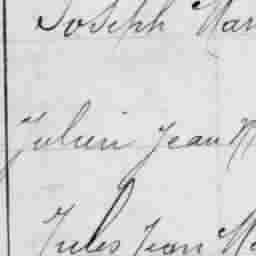 Joseph Mar
Julien Jean M
Jules Jean Ma